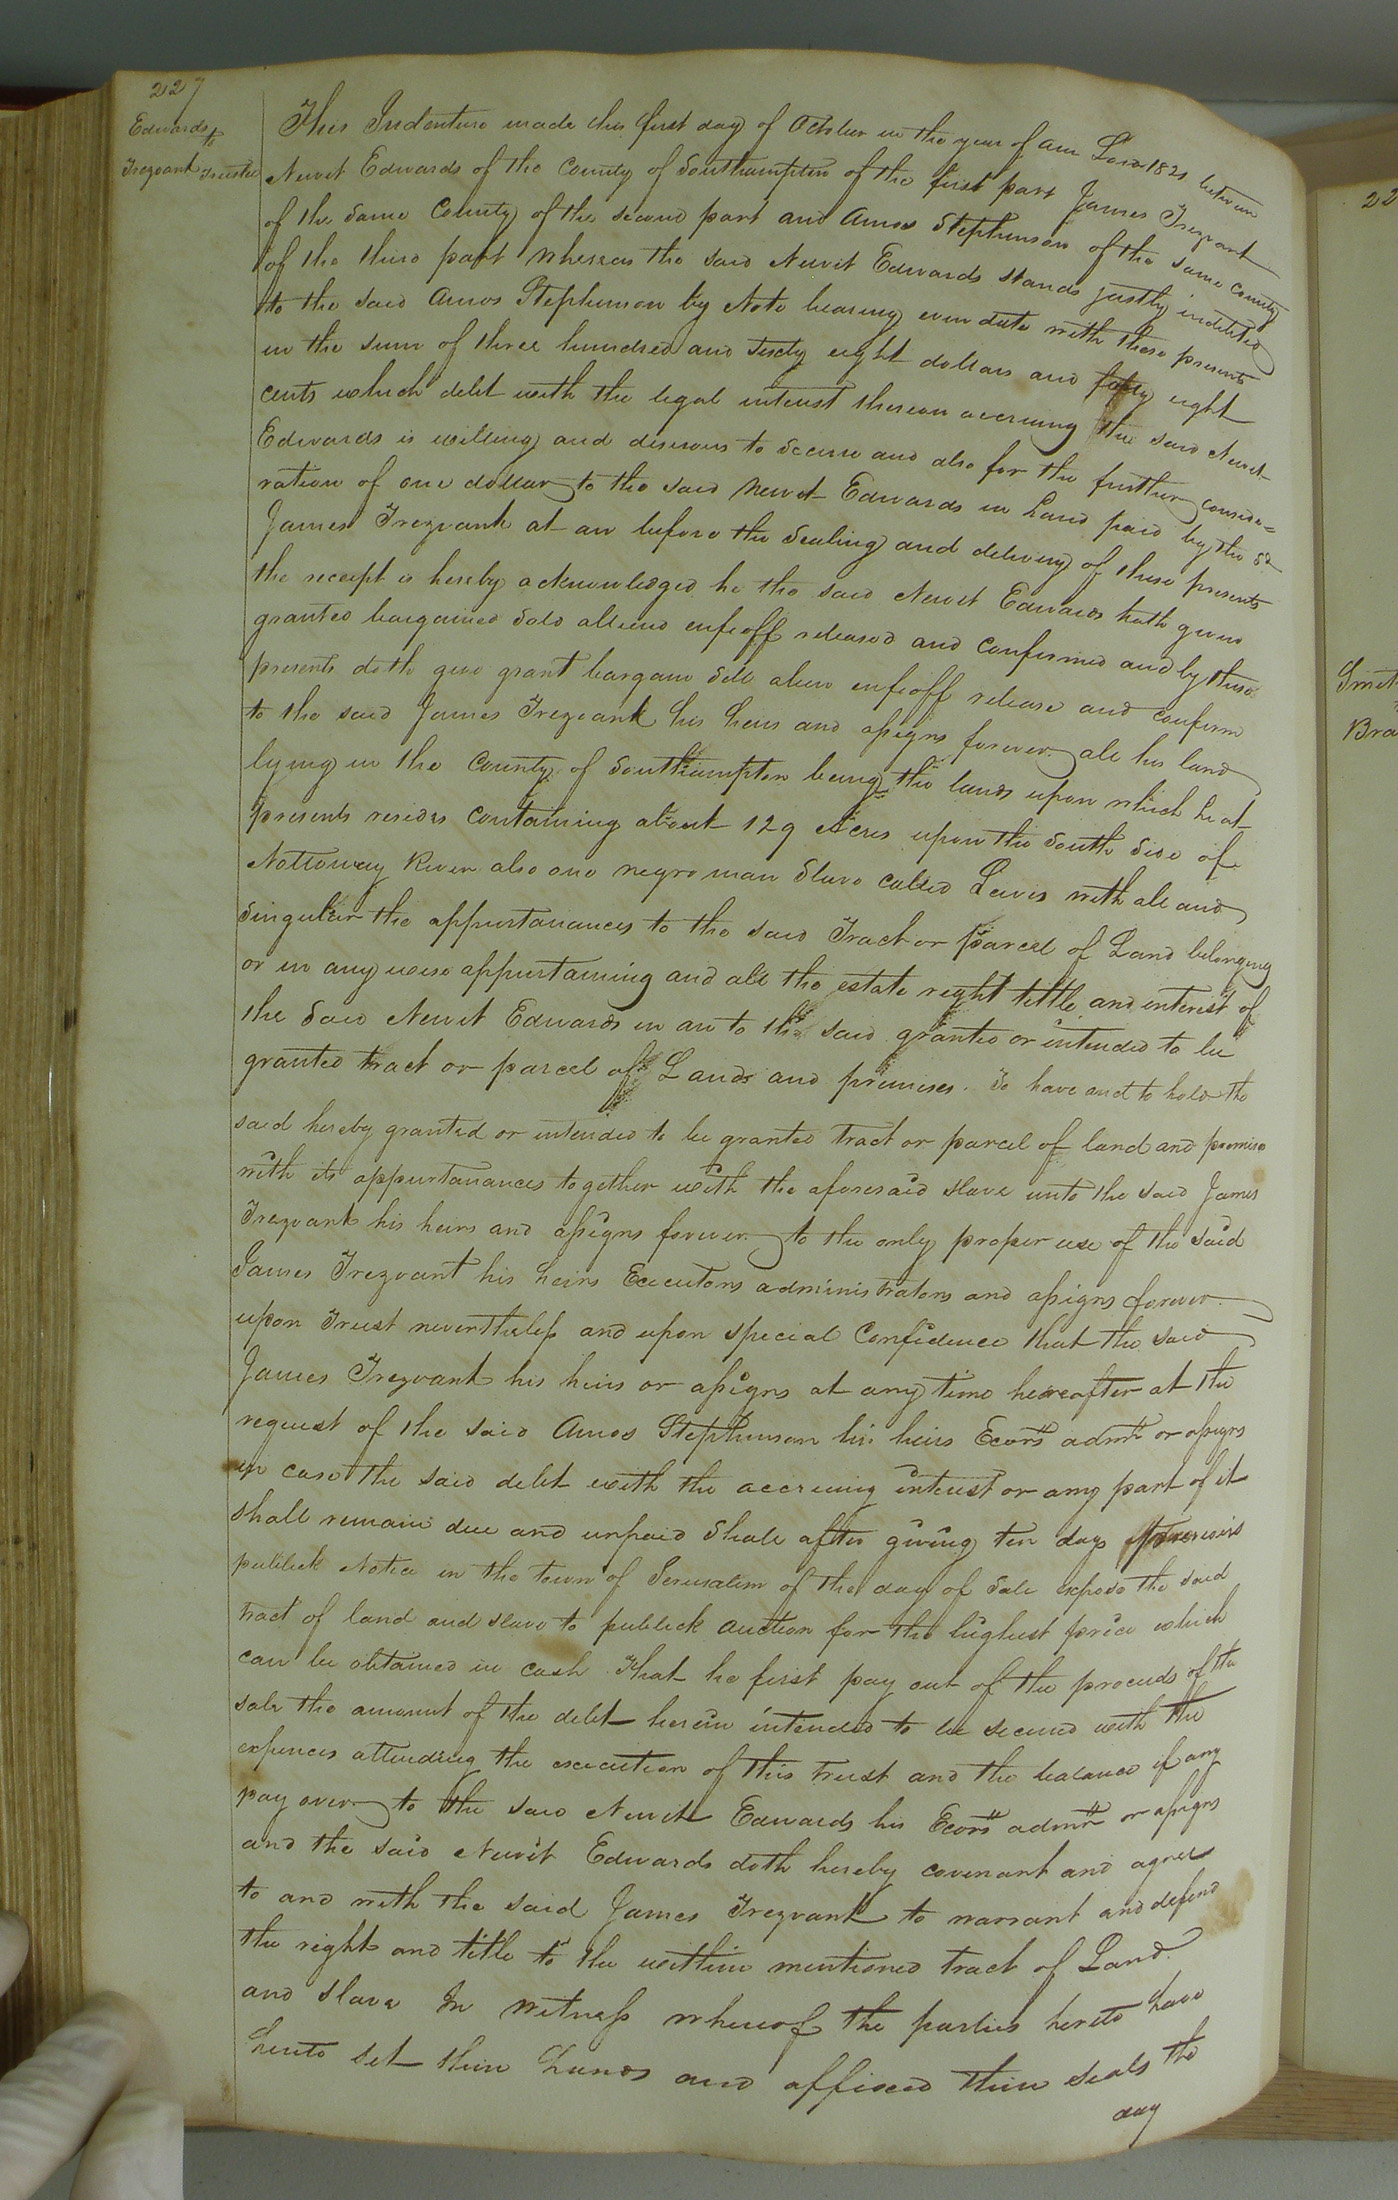 227
Edwards
to
Trezvant Trustee
This Indenture made this first day of October in the year of our Lord 1821 between
Newit Edwards of the County of Southampton of the first part James Trezvant
of the Same County of the second part and Amos Stephenson of the same County
of the third part Whereas the said Newit Edwards stands justly indebted
to the said Amos Stephenson by Note bearing even date with these presents
in the sum of three hundred and sixty eight dollars and forty eight
cents which debt with the legal interest thereon accruing the said Newit
Edwards is willing and desirous to Secure and also for the further conside=
ration of one dollar to the said Newit Edwards in hand paid by the sd
James Trezvant at or before the Sealing and delivery of these presents
the receipt is hereby acknowledged he the said Newit Edwards hath given
granted bargained Sold aliend enfeoff released and Confirmed and by these
presents doth give grant bargain Sell alien enfeoff release and confirm
to the said James Trezvant his heirs and assigns forever all his land
lying in the County of Southampton being the lands upon which he at
presents resides Containing about 129 Acres upon the South Side of
Nottoway River also one negro man Slave called Lewis with all and
Singular the appurtanances to the said Tract or parcel of Land belonging
or in any wise appurtaining and all the estate right tittle and interest of
the Said Newit Edwards in an to the said granted or intended to be
granted tract or parcel of Land and premises. To have and to hold the
said hereby granted or intended to be granted tract or parcel of land and premise
with its appurtanances together with the aforesaid slave unto the said James
Trezvant his heirs and assigns forever to the only proper use of the said
James Trezvant his heirs Executors administrators and assigns forever.
upon Trust nevertheless and upon special Confidence that the said
James Trezvant his heirs or assigns at any time hereafter at the
request of the said Amos Stephenson his heirs Ecors admrs or assigns
in case the said debt with the accruing interest or any part of it
shall remain due and unpaid Shall after giving ten days previous
publick Notice in the town of Jerusalem of the day of Sale expose the said
tract of land and slave to publick auction for the highest price which
can be obtained in cash. That he first pay out of the proceeds of the
sale the amount of the debt herein intended to be secured with the
expences attending the execution of this trust and the balance if any
pay over to the said Newit Edwards his Ecors admrs or assigns
and the said Newit Edwards doth hereby covenant and agree
to and with the said James Trezvant to warrant and defend
the right and title to the within mentioned tract of Land
and slave In witness whereof the parties hereto have
hereto set their hands and affixed their seals the
day
22
Smit
Bra